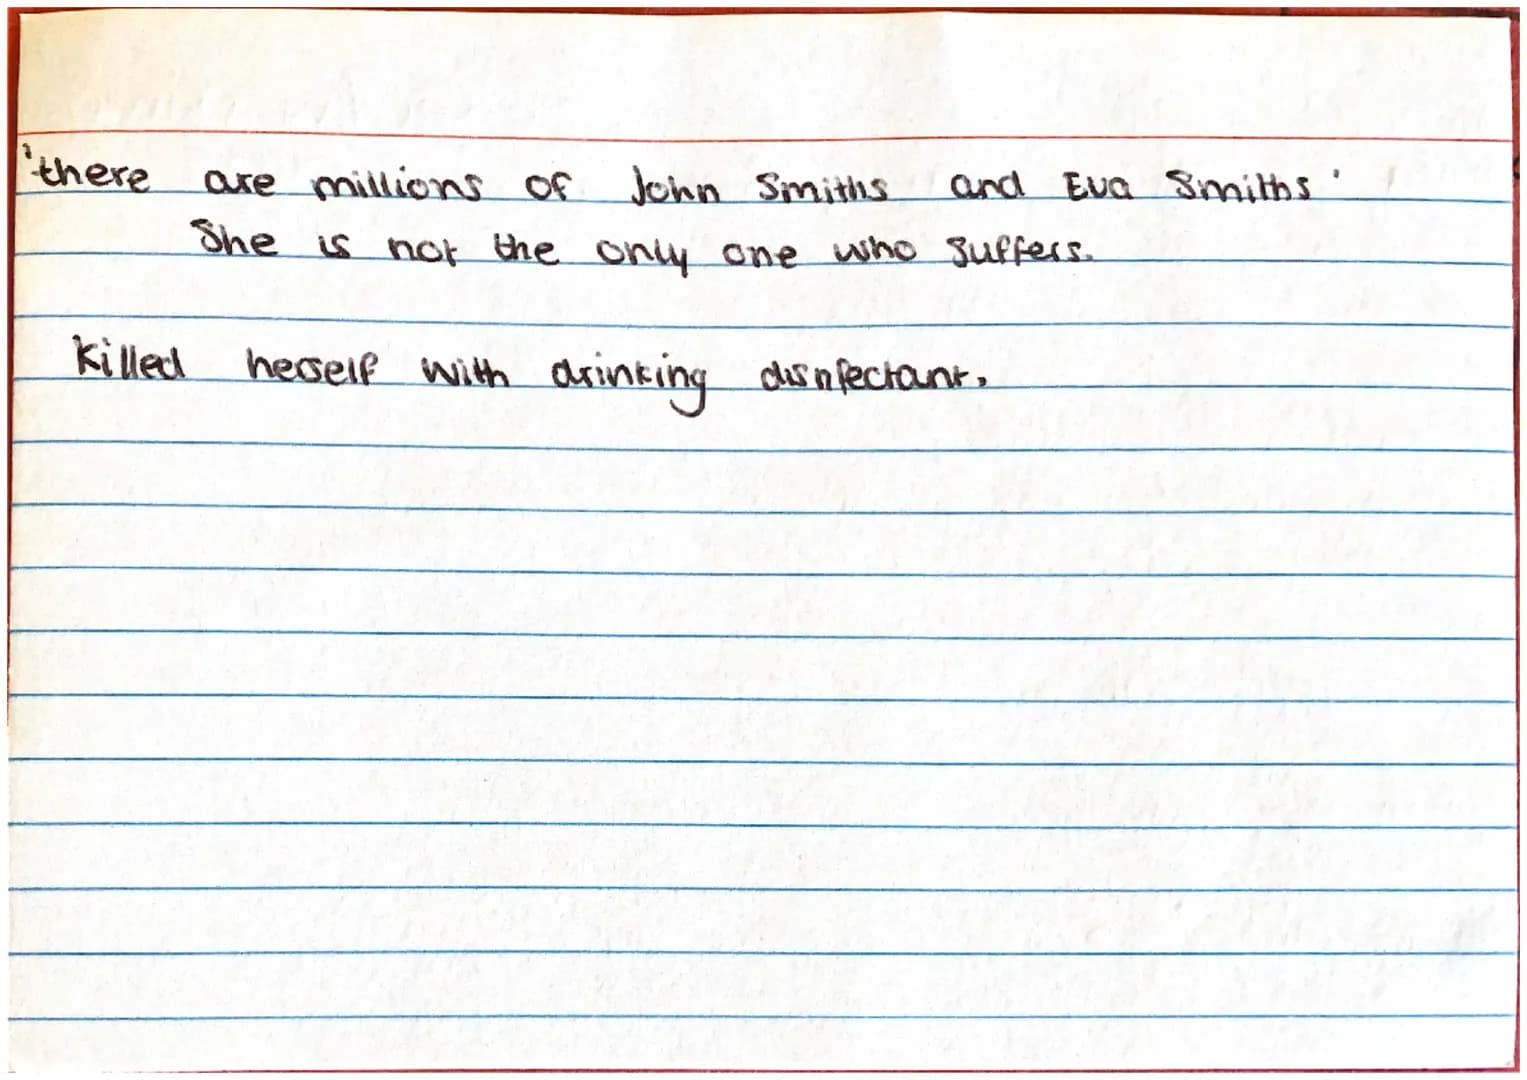 'there are millions of John Smiths and Eva Smiths'
She is not the only one who suffers.
Killed herself with drinking disnfectant.